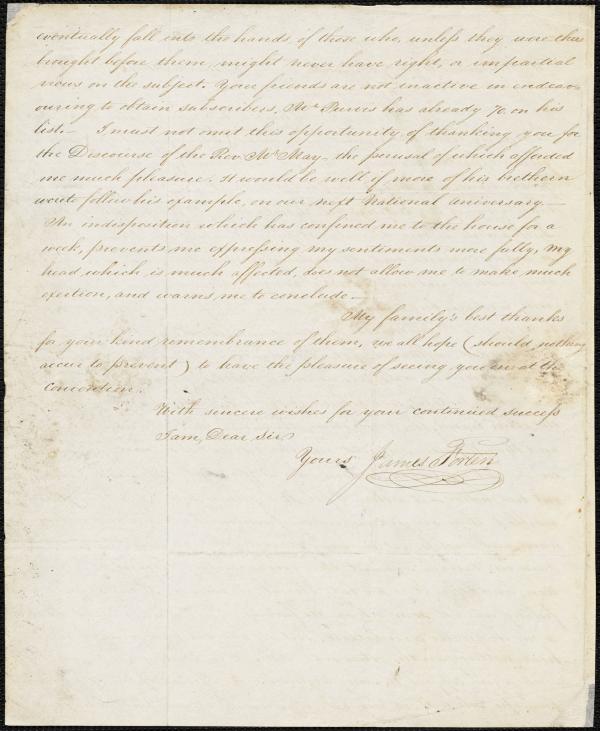 eventually fall into the hands of those who, unless they were thus
brought before them, might never have right, or impartial
views on the subject. Your friends are not inactive in endeav-
ouring to obtain subscribers, Mr Purvis has already 70 on his
list.— I must not omit this opportunity of thanking you for
the Discourse of the Rev. Mr May— the perusal of which afforded
me much pleasure. It would be well if more of his brethern
would follow his example, on our next National aniversary.—
An indisposition which has confined me to the house for a
week, prevents me expressing my sentiments more fully, my
head, which is much affected, does not allow me to make much
exertion, and warns me to conclude.—
My family's best thanks
for your kind remembrance of them, we all hope (should nothing
occur to prevent) to have the pleasure of seeing you at the
Convention.
With sincere wishes for your continued success
I am, Dear Sir
Yours James Forten